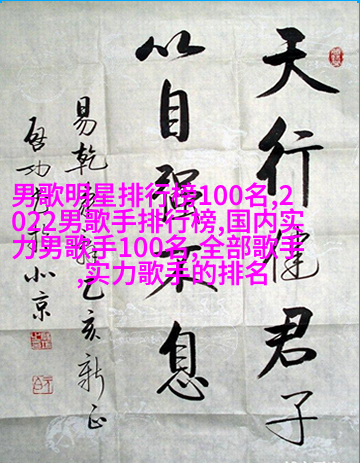 天行健君子
以自强不息
易乾 乙亥新正
啓功 北京
男歌明星排行榜100名,2
022男歌手排行榜,国内实
力男歌手100名,全部歌手
,实力歌手的排名